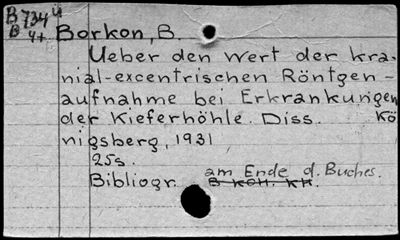 B 734
B 4+
Borkon, B.
Ueber den Wert der kra-
nial-excentrischen Röntgen-
aufnahme bei Erkrankungen
der Kieferhöhle. Diss. Kö
nigsberg, 1931
25s.
am Ende d. Buches.
Bibliogr.